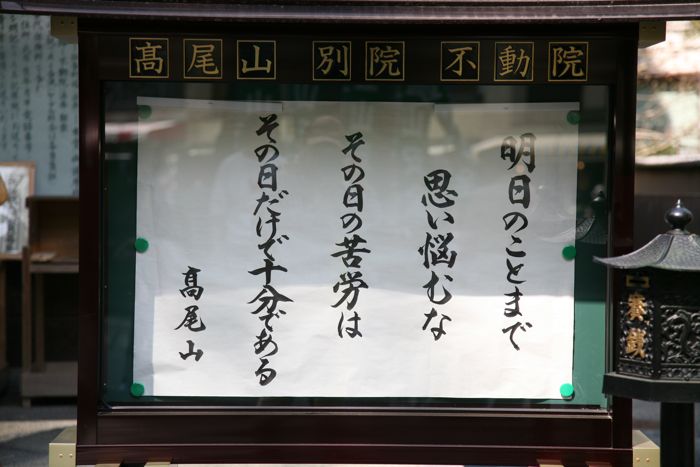 高尾山 別院 不動院
明日のことまで
思い悩むな
その日の苦労は
その日だけで十分である
髙尾山
奉獻